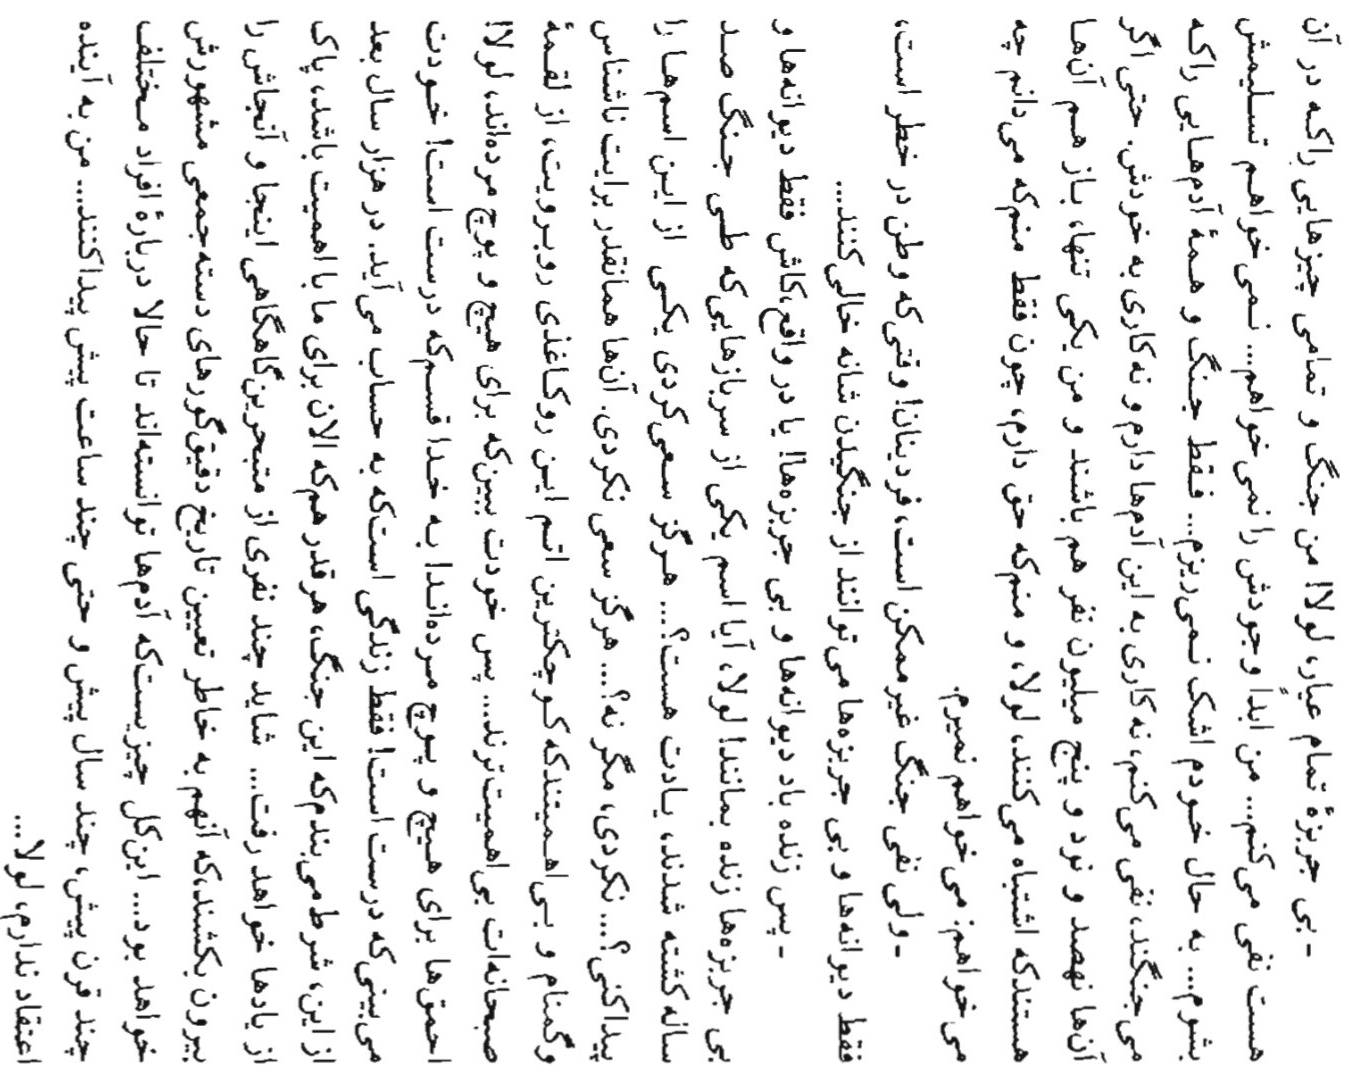 - بی جربزهٔ تمام عیار، لولا! من جنگ و تمامی چیزهایی را که در آن
هست نفی می‌کنم... من ابداً وجودش را نمی‌خواهم... نمی‌خواهم تسلیمش
بشوم... به حال خودم اشک نمی‌ریزم... فقط جنگ و همهٔ آدم‌هایی را که
می‌جنگند، نفی می‌کنم، نه کاری به این آدم‌ها دارم و نه کاری به خودش. حتی اگر
آن‌ها نهصد و نود و پنج میلیون نفر هم باشند و من یکی تنها، باز هم آن‌ها
هستند که اشتباه می‌کنند، لولا، و منم که حق دارم، چون فقط منم که می‌دانم چه
می‌خواهم: می‌خواهم نمیرم.
- ولی نفی جنگ غیرممکن است، فردینان! وقتی که وطن در خطر است،
فقط دیوانه‌ها و بی جربزه‌ها می‌توانند از جنگیدن شانه خالی کنند...
- پس زنده باد دیوانه‌ها و بی جربزه‌ها! یا در واقع، کاش فقط دیوانه‌ها و
بی جربزه‌ها زنده بمانند! لولا، آیا اسم یکی از سربازهایی که طی جنگ صد
ساله کشته شدند، یادت هست؟... هرگز سعی کردی یکی از این اسم‌ها را
پیدا کنی؟... نکردی، مگر نه؟... هرگز سعی نکردی. آن‌ها همانقدر برایت ناشناس
و گمنام و بی‌اهمیتند که کوچکترین اتم این روکاغذی روبرویت، از لقمهٔ
صبحانه‌ات بی‌اهمیت‌ترند... پس خودت ببین که برای هیچ و پوچ مرده‌اند، لولا!
احمق‌ها برای هیچ و پوچ مرده‌اند! به خدا قسم که درست است! خودت
می‌بینی که درست است! فقط زندگی است که به حساب می‌آید. در هزار سال بعد
از این، شرط می‌بندم که این جنگ، هرقدر هم که الان برای ما با اهمیت باشد، پاک
از یادها خواهد رفت... شاید چند نفری از متبحرین گاهگاهی اینجا و آنجاش را
بیرون بکشند، که آنهم به خاطر تعیین تاریخ دقیق گورهای دسته جمعی مشهورش
خواهد بود... این کل چیزیست که آدم‌ها توانسته‌اند تا حالا دربارهٔ افراد مختلف
چند قرن پیش، چند سال پیش و حتی چند ساعت پیش پیدا کنند... من به آینده
اعتقاد ندارم، لولا...